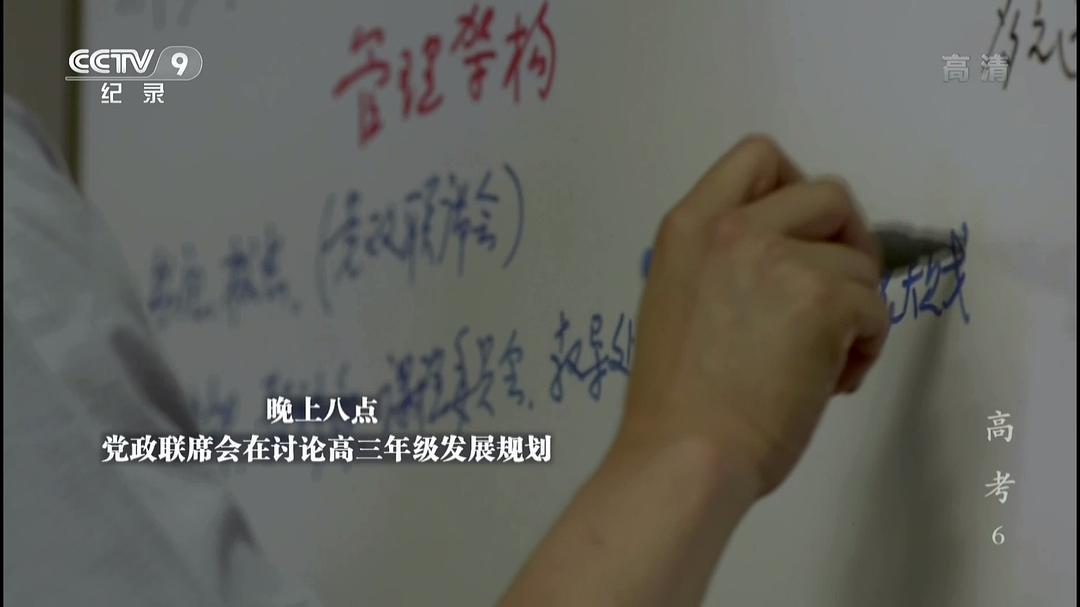 CCTV 9
纪录
高清
管理架构
(党政联席会)
课程委员会、教导处
晚上八点
党政联席会在讨论高三年级发展规划
高考
6